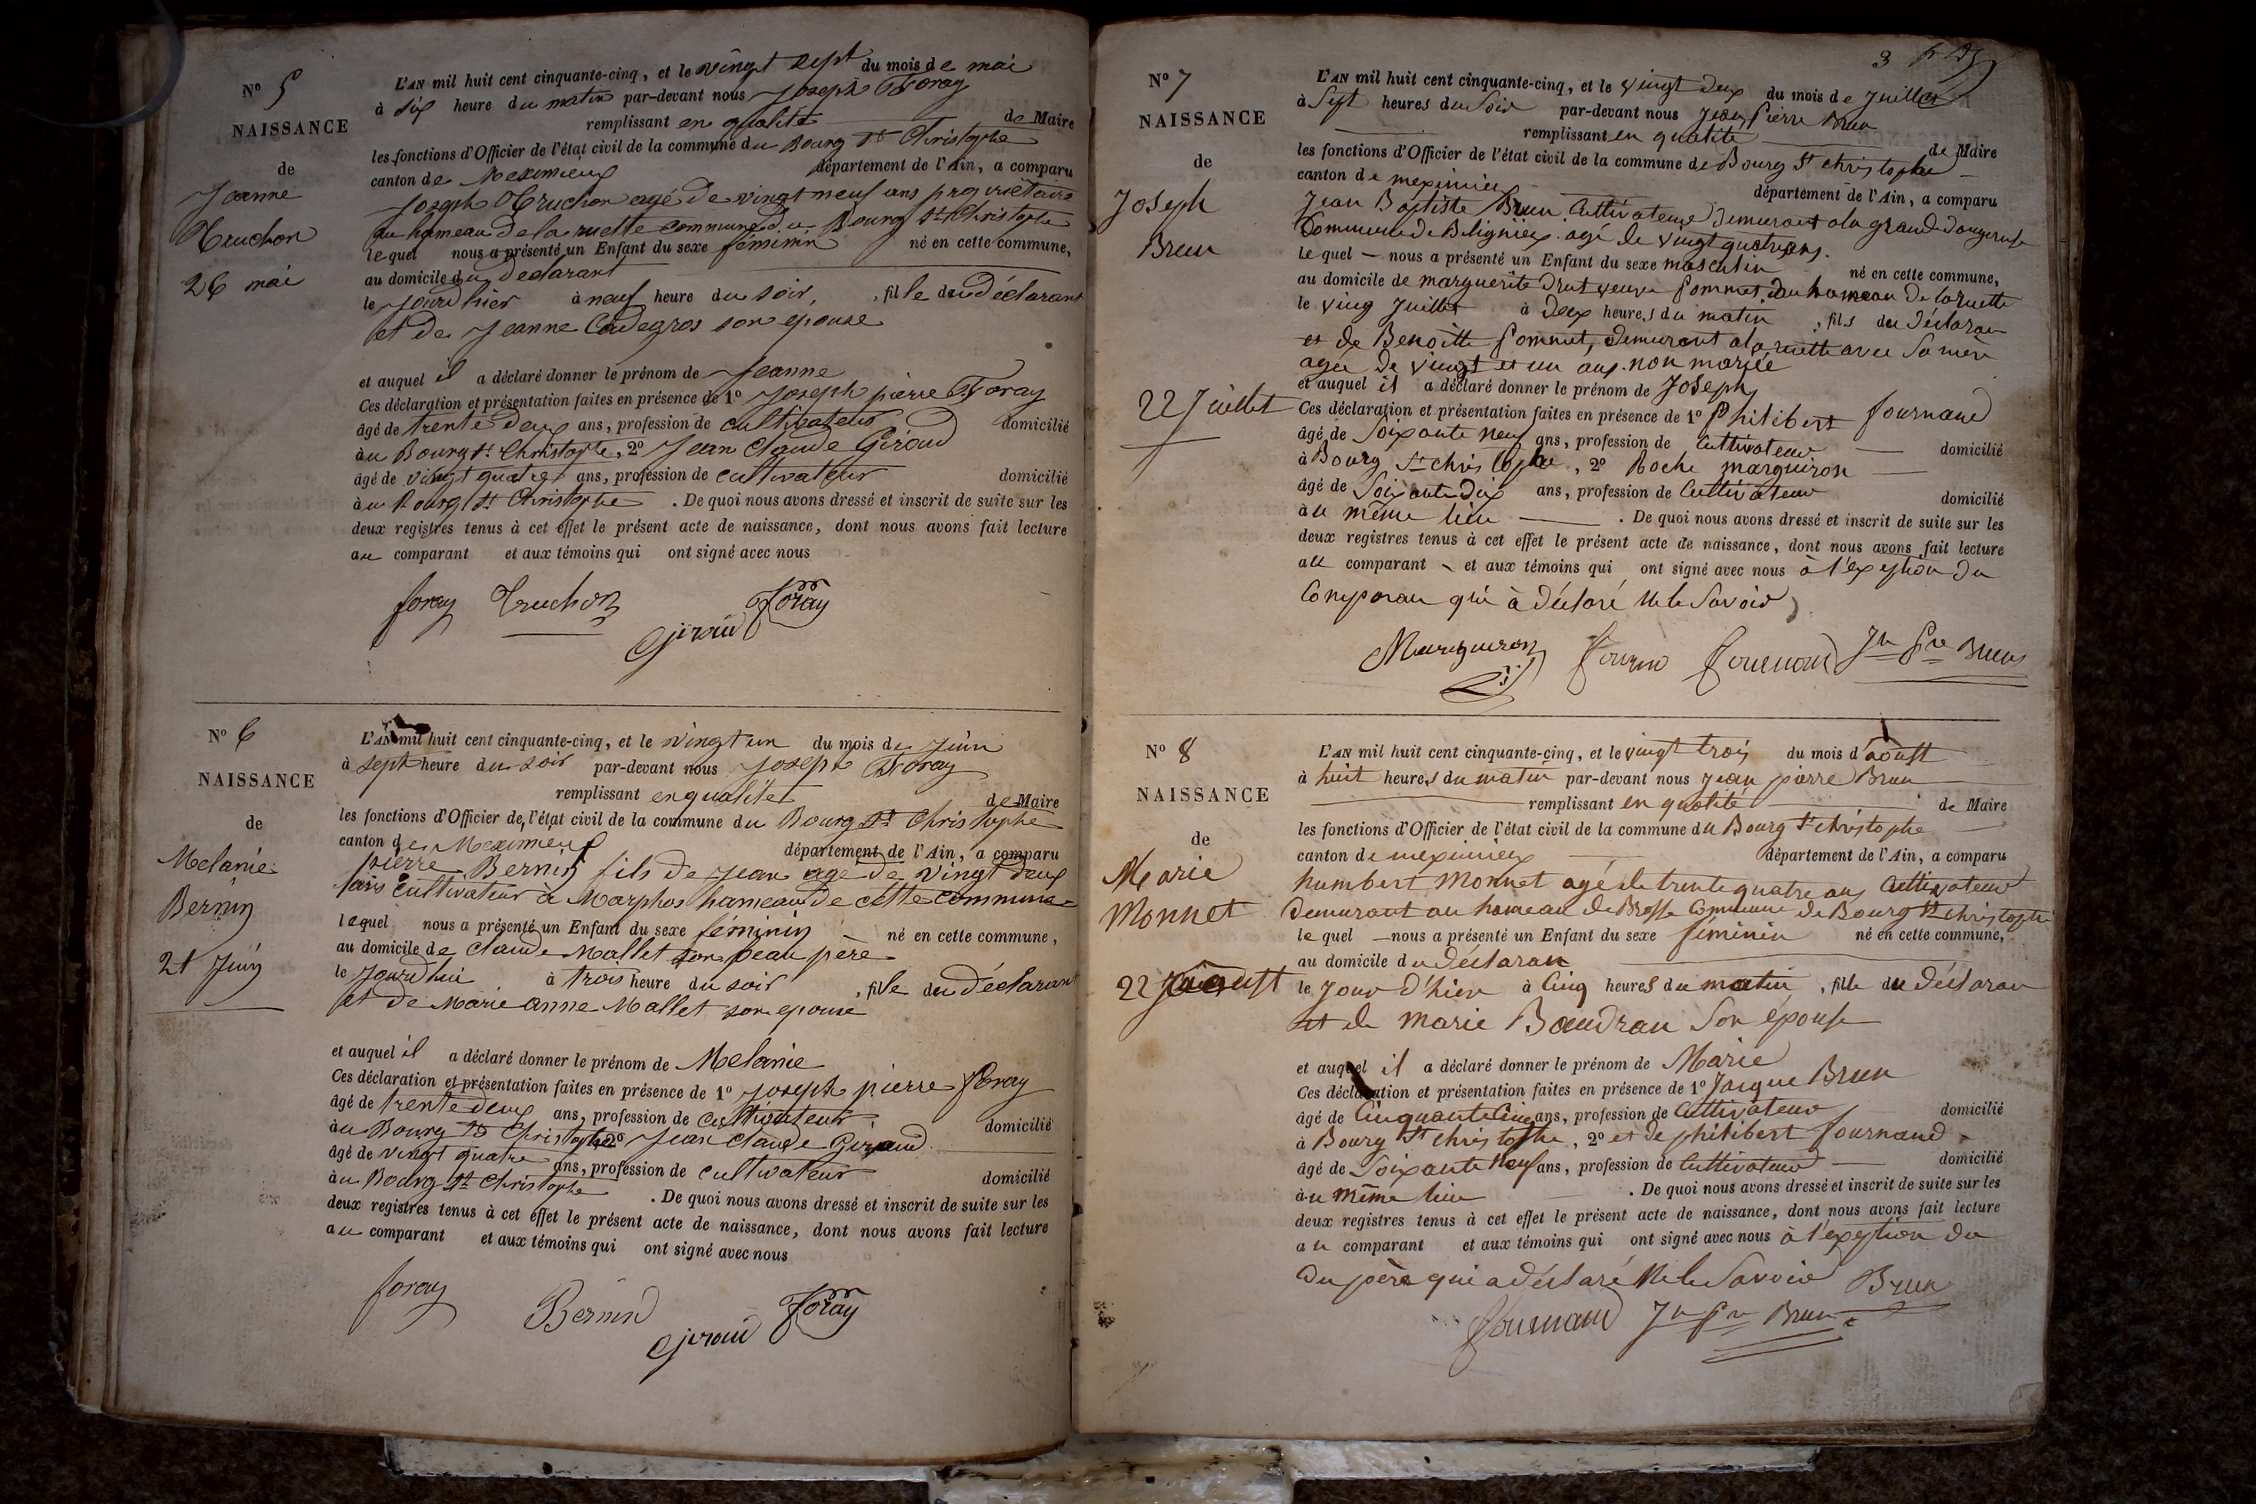 N° 5
NAISSANCE
de
Jeanne
Truchon
26 mai
L'AN mil huit cent cinquante-cinq, et le vingt sept du mois de mai
à six heure du matin par-devant nous Joseph Foray
remplissant en qualité de Maire
les fonctions d'Officier de l'état civil de la commune du Bourg St Christophe
canton de Meximieux département de l'Ain, a comparu
Joseph Truchon agé de vingt neuf ans propriétaire
au hameau de la ruette commune du Bourg St Christophe
lequel nous a présenté un Enfant du sexe féminin né en cette commune,
au domicile du déclarant
le jourd'hier à neuf heure du soir, fille du déclarant
et de Jeanne son epouse
et auquel il a déclaré donner le prénom de Jeanne
Ces déclaration et présentation faites en présence de 1° Joseph pierre Foray
âgé de trente deux ans, profession de cultivateur domicilié
au Bourg St Christophe, 2° Jean Claude Giroud
âgé de vingt quatre ans, profession de cultivateur domicilié
au Bourg St Christophe . De quoi nous avons dressé et inscrit de suite sur les
deux registres tenus à cet effet le présent acte de naissance, dont nous avons fait lecture
au comparant et aux témoins qui ont signé avec nous
foray Truchon Foray
Giroud
N° 6
NAISSANCE
de
Melanie
Bernin
21 Juin
L'AN mil huit cent cinquante-cinq, et le vingt un du mois de Juin
à sept heure du soir par-devant nous Joseph Foray
remplissant en qualité de Maire
les fonctions d'Officier de l'état civil de la commune du Bourg St Christophe
canton de Meximieux département de l'Ain, a comparu
pierre Bernin fils de Jean agé de vingt deux
ans cultivateur à Marphos hameau de cette commune
lequel nous a présenté un Enfant du sexe féminin né en cette commune,
au domicile de Claude Mallet son beau père
le Jourd'hui à trois heure du soir, fille du déclarant
et de Marie anne Mallet son epouse
et auquel il a déclaré donner le prénom de Melanie
Ces déclaration et présentation faites en présence de 1° Joseph pierre foray
âgé de trente deux ans, profession de cultivateur domicilié
au Bourg St Christophe 2° Jean Claude Giroud
âgé de vingt quatre ans, profession de cultivateur domicilié
au Bourg St Christophe . De quoi nous avons dressé et inscrit de suite sur les
deux registres tenus à cet effet le présent acte de naissance, dont nous avons fait lecture
au comparant et aux témoins qui ont signé avec nous
foray Bernin Foray
Giroud
3
N° 7
NAISSANCE
de
Joseph
Brun
22 Juillet
L'AN mil huit cent cinquante-cinq, et le vingt deux du mois de Juillet
à Sept heures du Soir par-devant nous Jean Pierre Brun
remplissant en qualité de Maire
les fonctions d'Officier de l'état civil de la commune de Bourg St christophe
canton de meximieux département de l'Ain, a comparu
Jean Baptiste Brun Cultivateur demurant a la grand dangereuse
Commune de Béligneux agé de vingt quatre ans.
lequel nous a présenté un Enfant du sexe masculin né en cette commune,
au domicile de marguerite Drut veuve Pommet, du hameau De la ruette
le ving Juillet à Deux heures du matin, fils du Déclaran
et de Benoitte Pommet, demurant a la ruette avec Sa mère
agée De vingt et un ans non mariée
et auquel il a déclaré donner le prénom de Joseph
Ces déclaration et présentation faites en présence de 1° Philibert fournand
âgé de Soixante neuf ans, profession de Cultivateur domicilié
à Bourg St christophe, 2° Roche marguiron
âgé de Soixante Dix ans, profession de Cultivateur domicilié
au même lieu . De quoi nous avons dressé et inscrit de suite sur les
deux registres tenus à cet effet le présent acte de naissance, dont nous avons fait lecture
au comparant et aux témoins qui ont signé avec nous à l'exeption du
Comparan qui à déclaré ne le Savoir
Marguiron fournand Jn Pre Brun
N° 8
NAISSANCE
de
Marie
Monnet
22 aoust
L'AN mil huit cent cinquante-cinq, et le vingt trois du mois d'aoust
à huit heures du matin par-devant nous Jean pierre Brun
remplissant en qualité de Maire
les fonctions d'Officier de l'état civil de la commune du Bourg St christophe
canton de meximieux département de l'Ain, a comparu
humbert Monnet agé de trente quatre ans Cultivateur
demurant au hameau de Bresse Commune de Bourg St christophe
lequel nous a présenté un Enfant du sexe féminin né en cette commune,
au domicile du Déclaran
le Jour d'hier à Cinq heures du matin, fille du Déclaran
et de marie Baudran Son épouse
et auquel il a déclaré donner le prénom de Marie
Ces déclaration et présentation faites en présence de 1° Jacque Brun
âgé de Cinquante Cinq ans, profession de Cultivateur domicilié
à Bourg St christophe, 2° et de philibert fournand
âgé de Soixante neuf ans, profession de Cultivateur domicilié
au même lieu . De quoi nous avons dressé et inscrit de suite sur les
deux registres tenus à cet effet le présent acte de naissance, dont nous avons fait lecture
au comparant et aux témoins qui ont signé avec nous à l'exeption du
du père qui a déclaré ne le Savoir Brun
fournand Jn Pre Brun